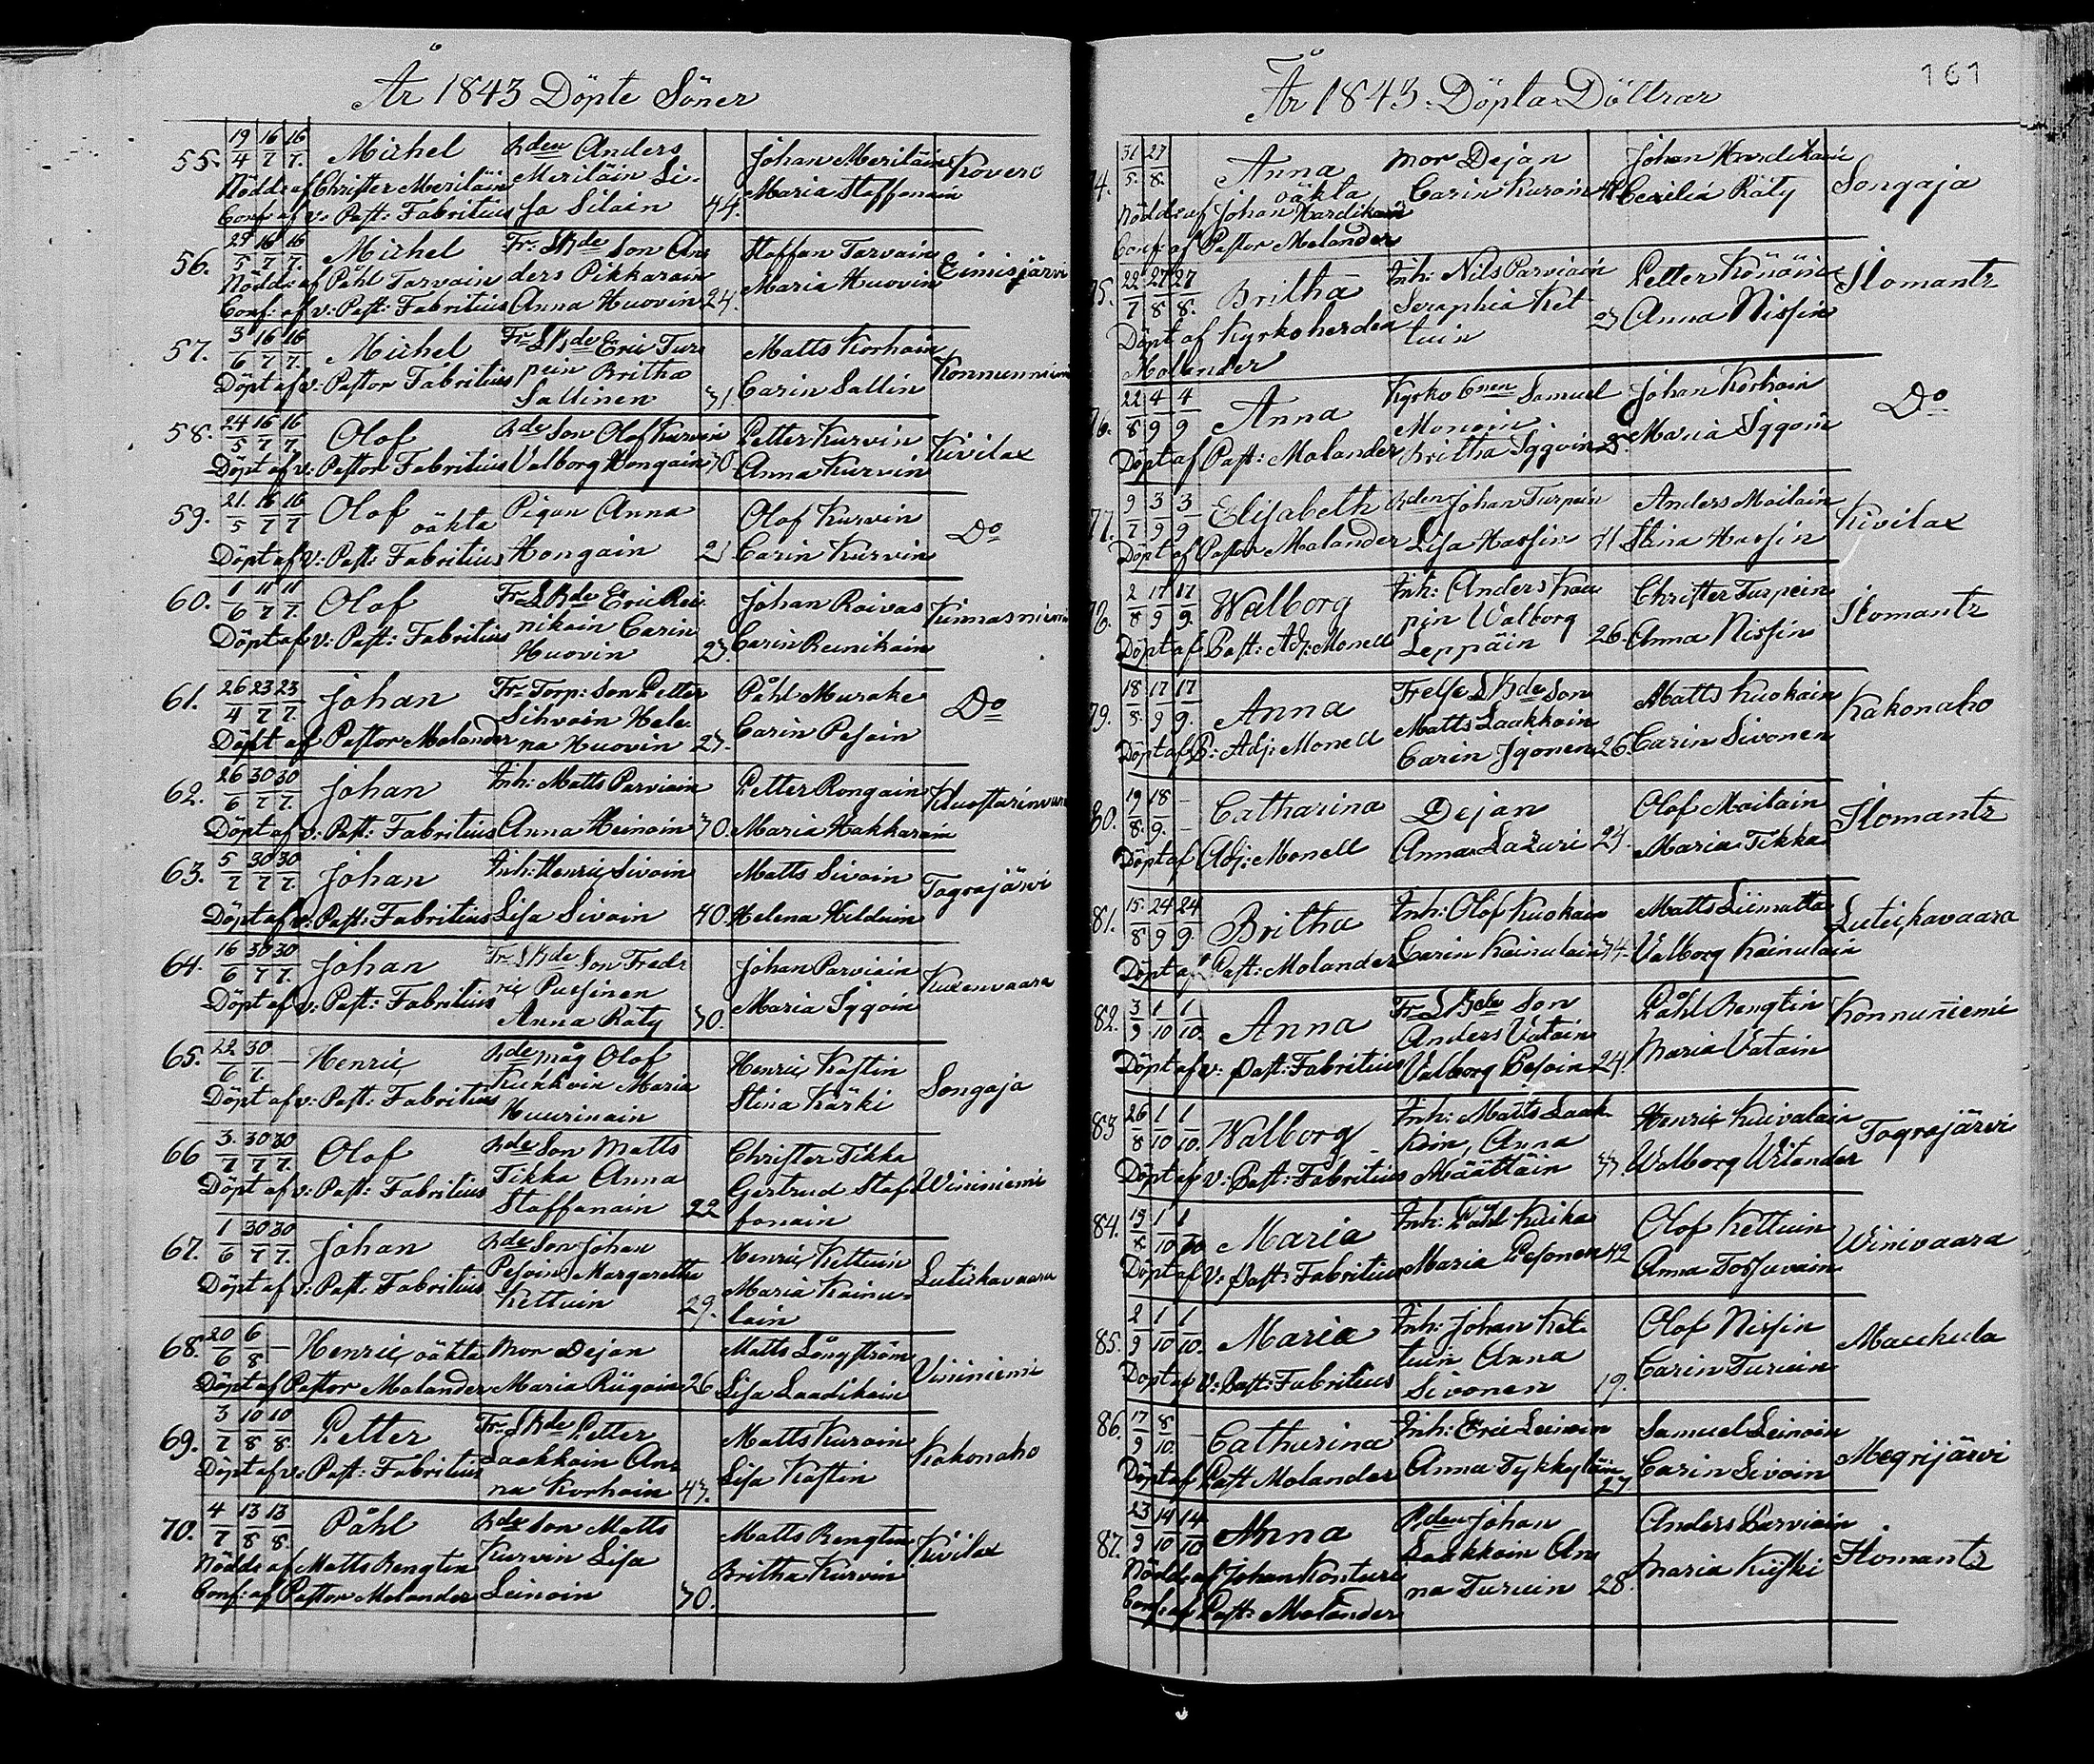 År 1843 Döpte Söner
55. 19/4 16/7 16/7. Michel Bden Anders Johan Meriläin Kovero
Nödd: af Christer Meriläin Meriläin Li- Maria Staffanain
Conf: af v: Past: Fabritius sa Silain 44.
56. 29/5 16/7 16/7. Michel Fr: LBde Son An- Staffan Tarvain Eimisjärvi
Nödd: af Påhl Tarvain ders Pikkarain Maria Huovin
Conf: af v: Past: Fabritius Anna Huovin 24.
57. 3/6 16/7 16/7. Michel Fr LBde Eric Tur- Matts Korhoin Konnunniemi
Döpt af v: Pastor Fabritius pein Britha Carin Sallin
Sallinen 31.
58. 24/5 16/7 16/7. Olof Bde Son Olof Kurvin Petter Kurvin Kivilax
Döpt af v: Pastor Fabritius Valborg Hongain 30 Anna Kurvin
59. 21./5 16/7 16/7 Olof Pigan Anna Olof Kurvin Do
oäkta
Döpt af v: Past: Fabritius Hongain Carin Kurvin
60. 1/6 11/7 11/7. Olof Fr LBde Eric Rei- Johan Roivas Kinnasniemi
Döpt af v: Past: Fabritius nikain Carin Carin Reinikain
Huovin 23.
61. 26/4 23/7 23/7. Johan Fr Torp: Son Petter Påhl Murake Do
Döpt af Pastor Molander Sihvoin Hele- Carin Pesoin
na Huovin 27.
62. 26/6 30/7 30/7. Johan Inh: Matts Parviain Petter Rongain Kuostarinvara
Döpt af v: Past: Fabritius Anna Heinoin 30. Maria Hakkarain
63. 5/7 30/7 30/7. Johan Inh: Henric Sivoin Matts Sivoin Tograjärvi
Döpt af v: Past: Fabritius Lisa Sivoin 40. Helena Hilduin
64. 16/6 30/7 30/7. Johan Fr LBde Son Fred- Johan Parviain Kuisenvaara
Döpt af v: Past: Fabritius ric Pussinen Maria Iggoin
Anna Räty 30.
65. 22./6 30/7. – Henric Bde måg Olof Henric Kastin Songaja
Döpt af v: Past: Fabritius Kukkoin Maria Stina Kärki
Huurinain
66 3./7 30/7 30/7. Olof Bde Son Matts Christer Tikka Wiiniemi
Döpt af v: Past: Fabritius Tikka Anna Gertrud Staf-
Staffanain 22 fanain
67. 1/6 30/7 30/7. Johan Bde Son Johan Henric Kettuin Lutickavaara
Döpt af v: Past: Fabritius Pesoin Margaretha Maria Kainu-
Kettuin 29. lain
68. 20/6 6/8 – Henric oäkta Mor Dejan Matts Långström Viiniemi
Döpt af Pastor Molander Maria Riigain 26 Lisa Laadikain
69. 3/7 10/8 10/8. Petter Fr LBde Petter Matts Kuroin Kakonaho
Döpt af v: Past: Fabritius Laakkoin An- Lisa Kastin
na Korhoin 43.
70. 4/7 13/8 13/8. Påhl Bde Son Matts Matts Rengtin Kivilax
Nödd: af Matts Rengtin Kurvin Lisa Britha Kurvin
Conf: af Pastor Molander Leinoin 30.
År 1843. Döpta Döttrar
161
74. 31/5. 27/8. Anna Mor Dejan Johan Hardikain Songaja
oäkta Carin Kuroin Cecilia Räty
Nödd: af Johan Hardikain
Conf: af Pastor Molander
75. 22/7 27/8 27/8. Britha Inh: Nils Parviain Petter Könöin Ilomants
Döpt af Kyrkoherden Seraphia Ket- Anna Nissin
Molander tuin 27
76. 22/8 4/9 4/9 Anna Kyrko Bnen Samuel Johan Korhoin Do
Monoin Maria Iggoin
Döpt af Past: Molander Britha Iggoin
77. 9/7 3/9 3/9 Elisabeth Bden Johan Turpein Anders Moilain Kivilax
Döpt af Pastor Molander Lisa Hassin 41 Stina Hassin
78. 2/8 17/9 17/9. Walborg Inh: Anders Kau- Christer Turpein Ilomants
Döpt af Past: Adj: Monell pin Walborg Anna Nissin
Leppäin 26.
79. 18/8. 17/9 17/9. Anna Frelse LBde Son Matts Kuokain Kakonaho
Döpt af P: Adj: Monell Matts Laakkoin Carin Sivonen
Carin Igonen 26
80. 19/8. 18/9. – Catharina Dejan Olof Moilain Ilomants
Döpt af Adj: Monell Anna Lazuri 24. Maria Tikka
81. 15./8 24/9 24/9. Britha Inh: Olof Kuokain Matts Liimatta Lutickavaara
Döpt af Past: Molander Carin Kainulain 34. Valborg Kainulain
82. 3/9 1/10 1/10. Anna Fr LBde Son Påhl Rengtin Konnuniemi
Anders Vatain Maria Vatain
Döpt af v: Past: Fabritius Valborg Pesoin 24.
83 26/8 1/10 1/10. Walborg Inh: Matts Laak- Henric Kuivalain Tograjärvi
koin, Anna Walborg Wilander
Döpt af v: Past: Fabritius Määttäin 37.
84. 19/8 1/10 1/10 Maria Inh: Påhl Kuika Olof Kettuin Winivaara
Döpt af V: Past: Fabritius Maria Pesonen 42 Anna Tossavain
85. 2/9 1/10 1/10. Maria Inh: Johan Ket- Olof Nissin Maukula
tuin Anna Carin Turuin
Döpt af V: Past: Fabritius Sivonen 19.
86. 17/9 8/10. – Catharina Inh: Eric Leinoin Samuel Leinoin Megrijärvi
Döpt af Past Molander Anna Tykkyläin 27. Carin Sivoin
87. 23/9 14/10 14/10 Anna Bden Johan Anders Parviain Ilomants
Nödd: af Johan Konture Laakkoin An- Maria Kiiski
Conf: af Past: Molander na Turuin 28.